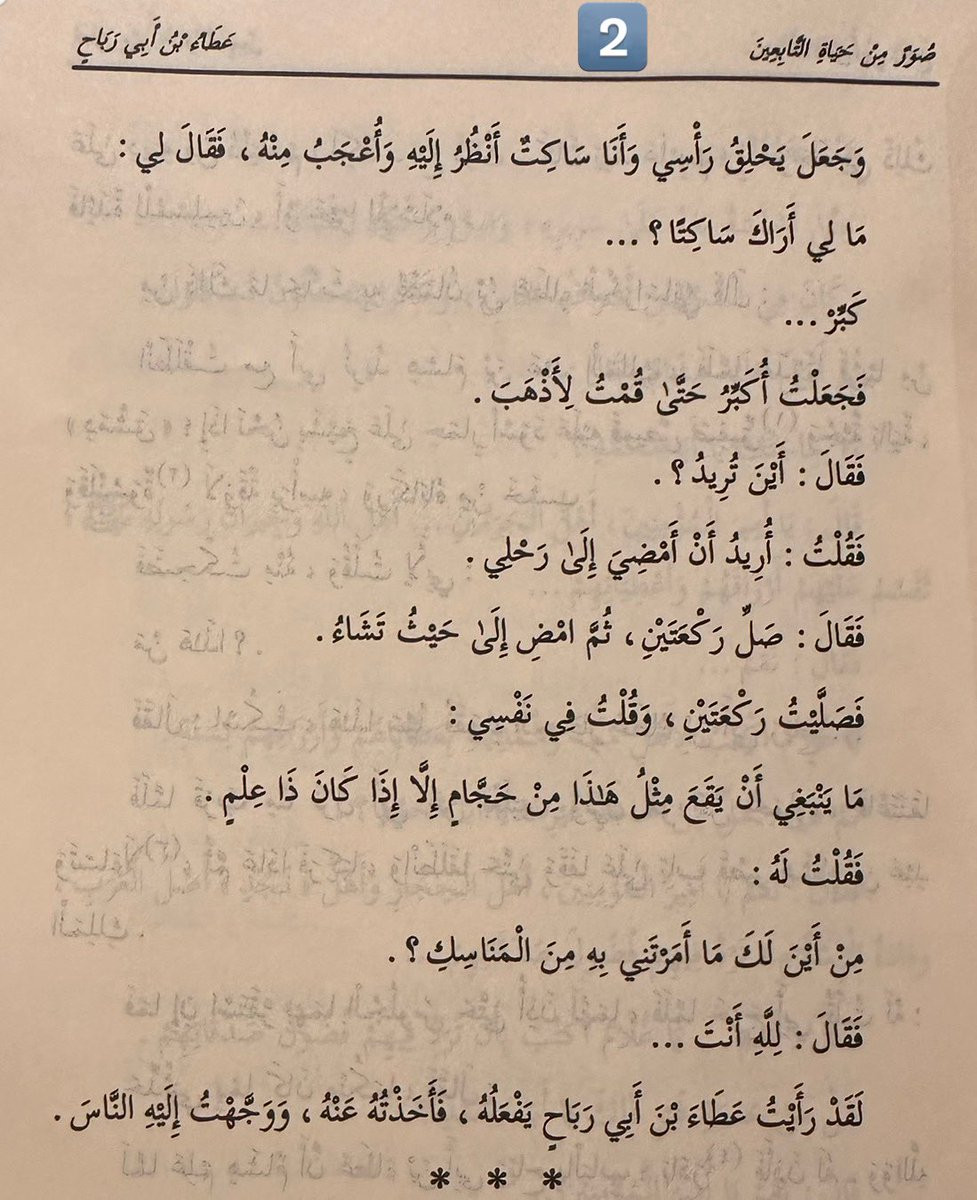 صُوَرٌ مِنْ حَيَاةِ التَّابِعِينَ 2 عَطَاءُ بْنُ أَبِي رَبَاحٍ
وَجَعَلَ يَحْلِقُ رَأْسِي وَأَنَا سَاكِتٌ أَنْظُرُ إِلَيْهِ وَأُعْجَبُ مِنْهُ ، فَقَالَ لِي :
مَا لِي أَرَاكَ سَاكِتًا ؟ ...
كَبِّرْ ...
فَجَعَلْتُ أُكَبِّرُ حَتَّىٰ قُمْتُ لِأَذْهَبَ .
فَقَالَ : أَيْنَ تُرِيدُ ؟ .
فَقُلْتُ : أُرِيدُ أَنْ أَمْضِيَ إِلَىٰ رَحْلِي .
فَقَالَ : صَلِّ رَكْعَتَيْنِ ، ثُمَّ امْضِ إِلَىٰ حَيْثُ تَشَاءُ .
فَصَلَّيْتُ رَكْعَتَيْنِ ، وَقُلْتُ فِي نَفْسِي :
مَا يَنْبَغِي أَنْ يَقَعَ مِثْلُ هَٰذَا مِنْ حَجَّامٍ إِلَّا إِذَا كَانَ ذَا عِلْمٍ .
فَقُلْتُ لَهُ :
مِنْ أَيْنَ لَكَ مَا أَمَرْتَنِي بِهِ مِنَ الْمَنَاسِكِ ؟ .
فَقَالَ : لِلَّهِ أَنْتَ ...
لَقَدْ رَأَيْتُ عَطَاءَ بْنَ أَبِي رَبَاحٍ يَفْعَلُهُ ، فَأَخَذْتُهُ عَنْهُ ، وَوَجَّهْتُ إِلَيْهِ النَّاسَ .
* * *